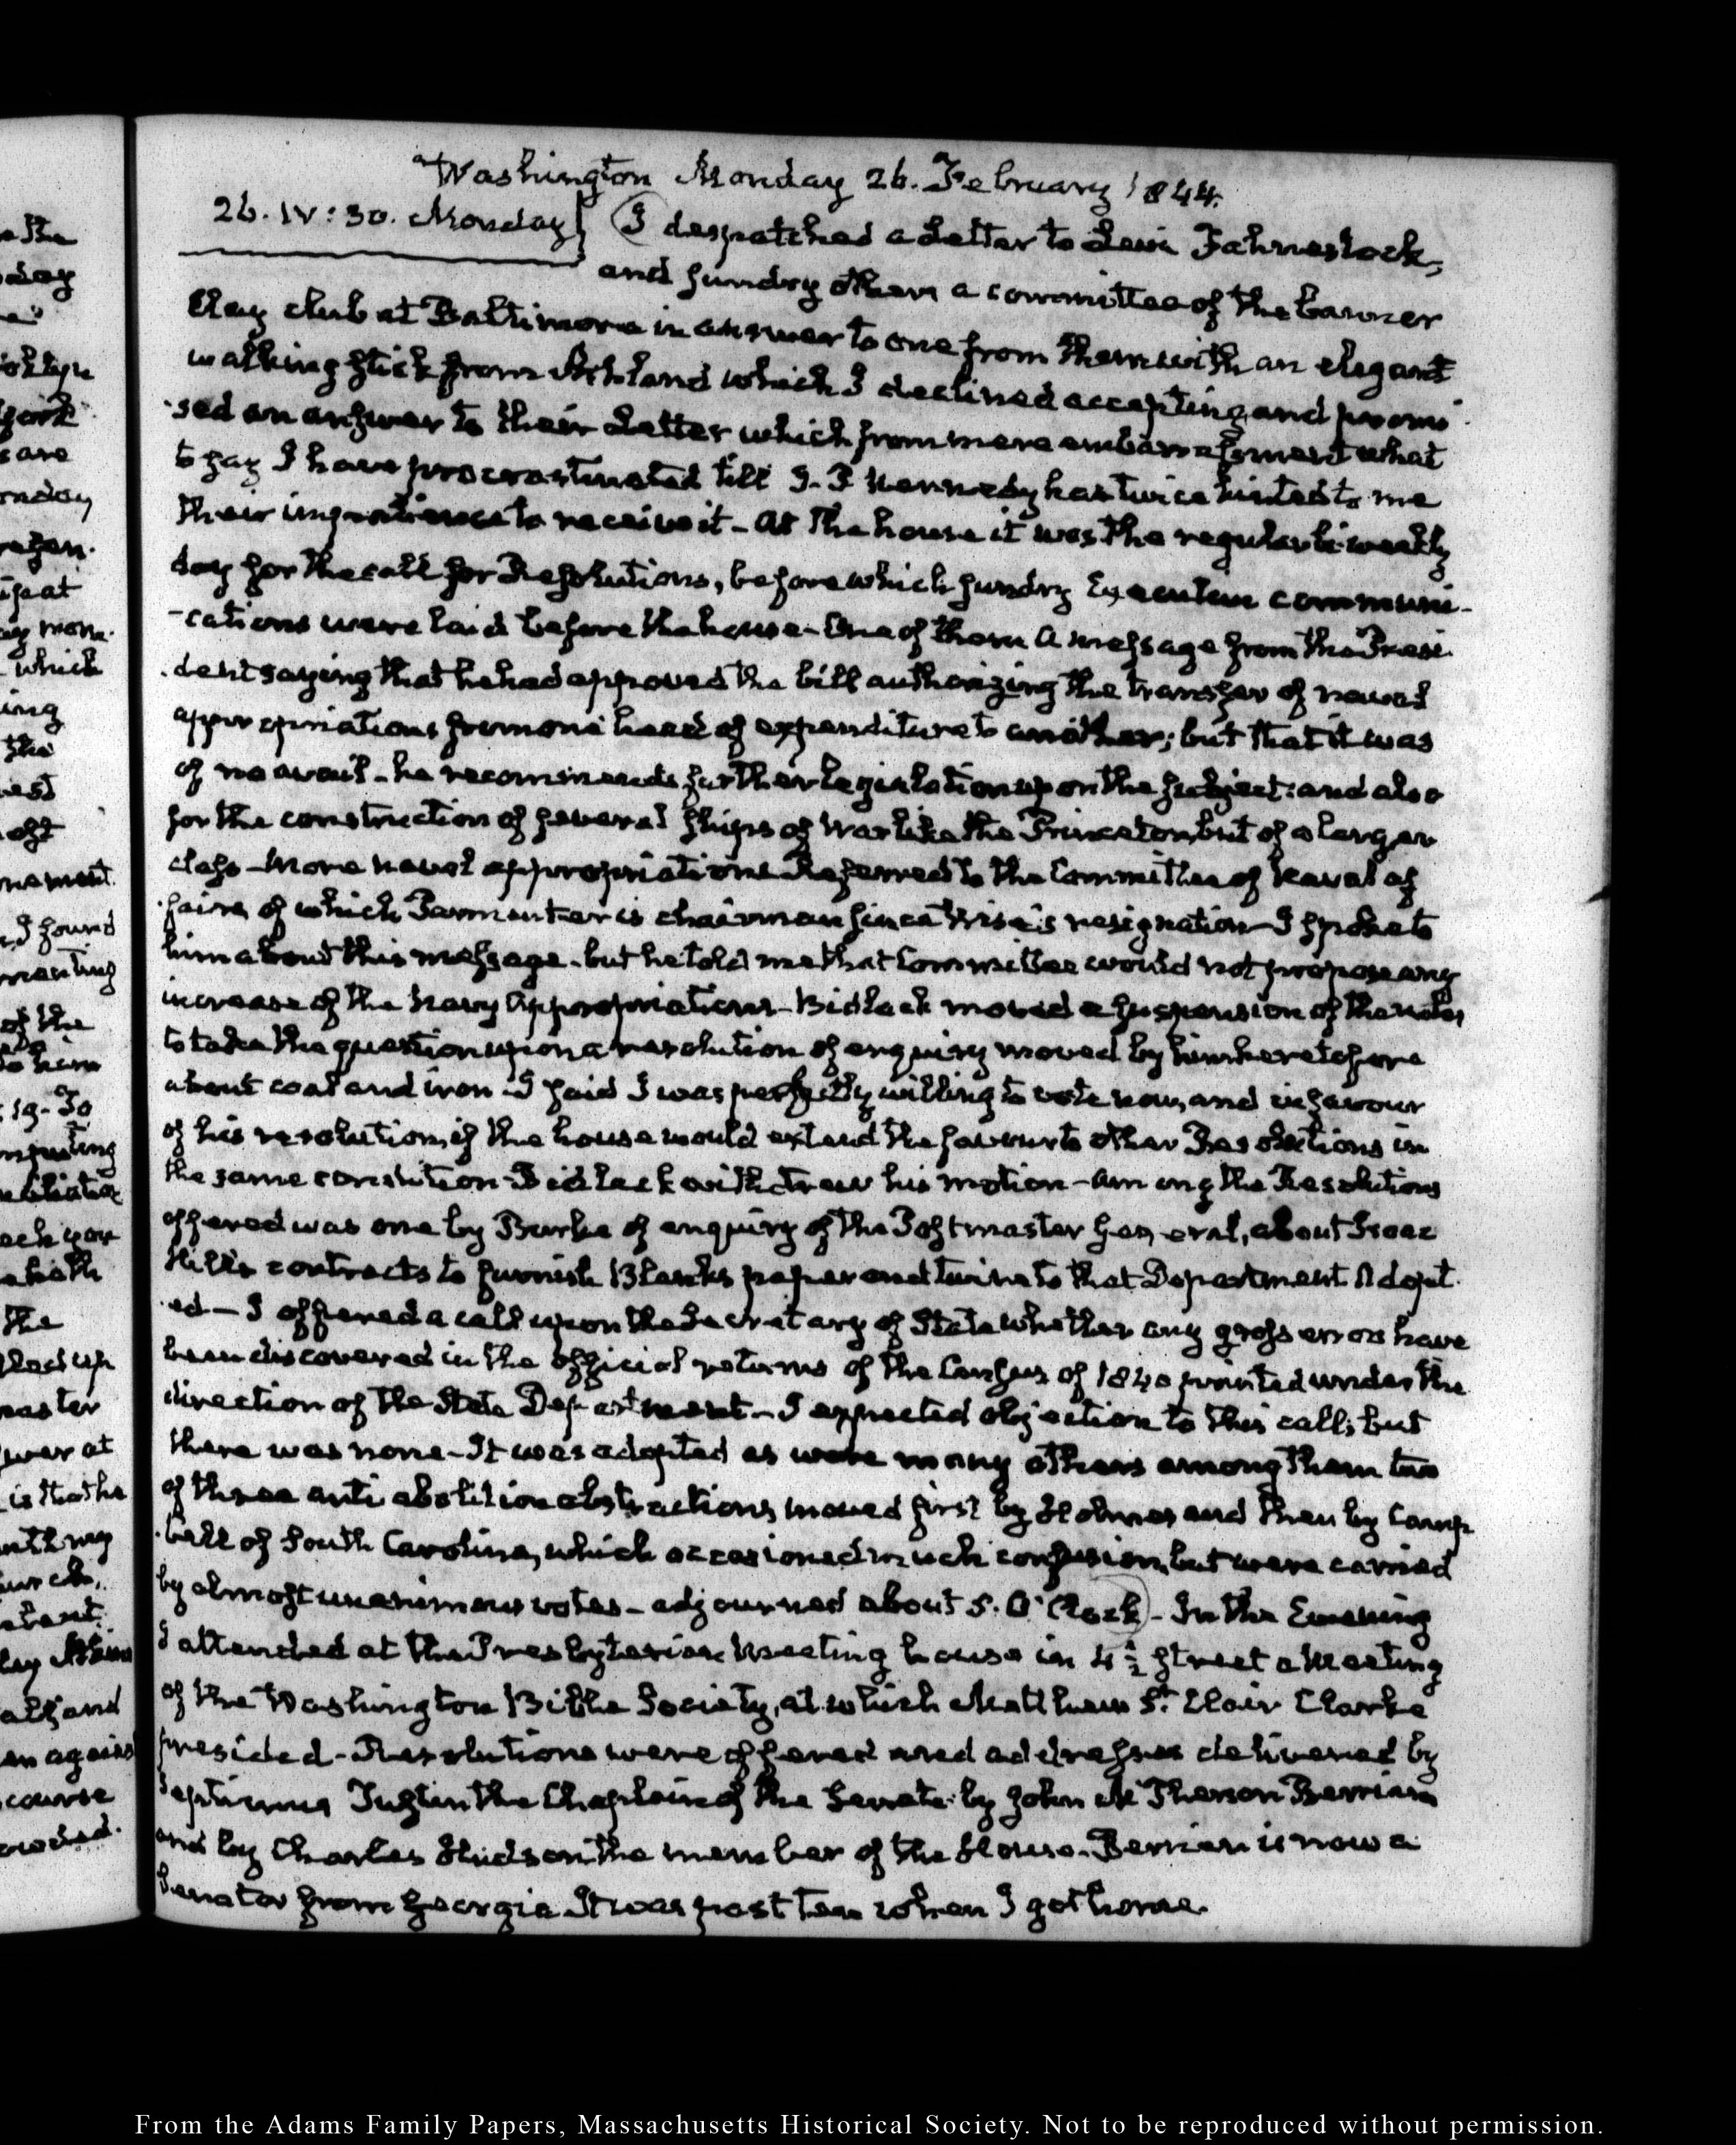 Washington Monday 26. February 1844.
26. IV:30. Monday} I despatched a Letter to Levi Fahnestock,
and sundry others a committee of the Tanner
Clay club at Baltimore in answer to one from them with an elegant
walking stick from Ashland which I declined accepting, and promi-
sed an answer to their Letter which from mere embarrassment what
to say I have procrastinated till J. P Kennedy has twice hinted to me
their impatience to receive it - At the house it was the regular bi-weekly
day for the call for Resolutions, before which sundry Executive communi-
-cations were laid before the house - One of them a message from the Presi-
dent saying that he had approved the bill authorizing the transfer of naval
appropriations from one head of expenditure to another; but that it was
of no avail - he recommends further legislation upon the subject: and also
for the construction of several ships of War like the Princeton, but of a larger
class - More naval appropriations Referred to the Committee of Naval af-
fairs, of which Parmenter is chairman since Wise's resignation - I spoke to
him about this message - but he told me that Committee would not propose any
increase of the Navy appropriations - Bidlack moved a suspension of the rules
to take the question upon a resolution of enquiry moved by him heretofore
about coal and iron - I said I was perfectly willing to vote now, and in favour
of his resolution, if the house would extend the favour to other Resolutions in
the same condition - Bidlack withdrew his motion - Among the Resolutions
offered was one by Burke of enquiry of the Postmaster General, about Isaac
Hill's contracts to furnish Blanks paper and twine to that Department Adopt-
ed - I offered a call upon the Secretary of State whether any gross errors have
been discovered in the official returns of the Census of 1840 printed under the
direction of the State Department - I expected objection to this call; but
there was none - It was adopted as were many others among them two
of three anti abolition abstractions moved first by Holmes and then by Camp-
bell of South Carolina, which occasioned much confusion, but were carried
by almost unanimous votes - adjourned about 5. O'Clock - In the Evening
I attended at the Presbyterian Meeting house in 4½ street a Meeting
of the Washington Bible Society, at which Matthew St. Clair Clarke
presided - Resolutions were offered and addresses delivered by
Septimus Tustin the Chaplain of the Senate - by John McPherson Berrian
and by Charles Hudson the member of the House. Berrian is now a
Senator from Georgia It was past ten when I got home.
From the Adams Family Papers, Massachusetts Historical Society. Not to be reproduced without permission.